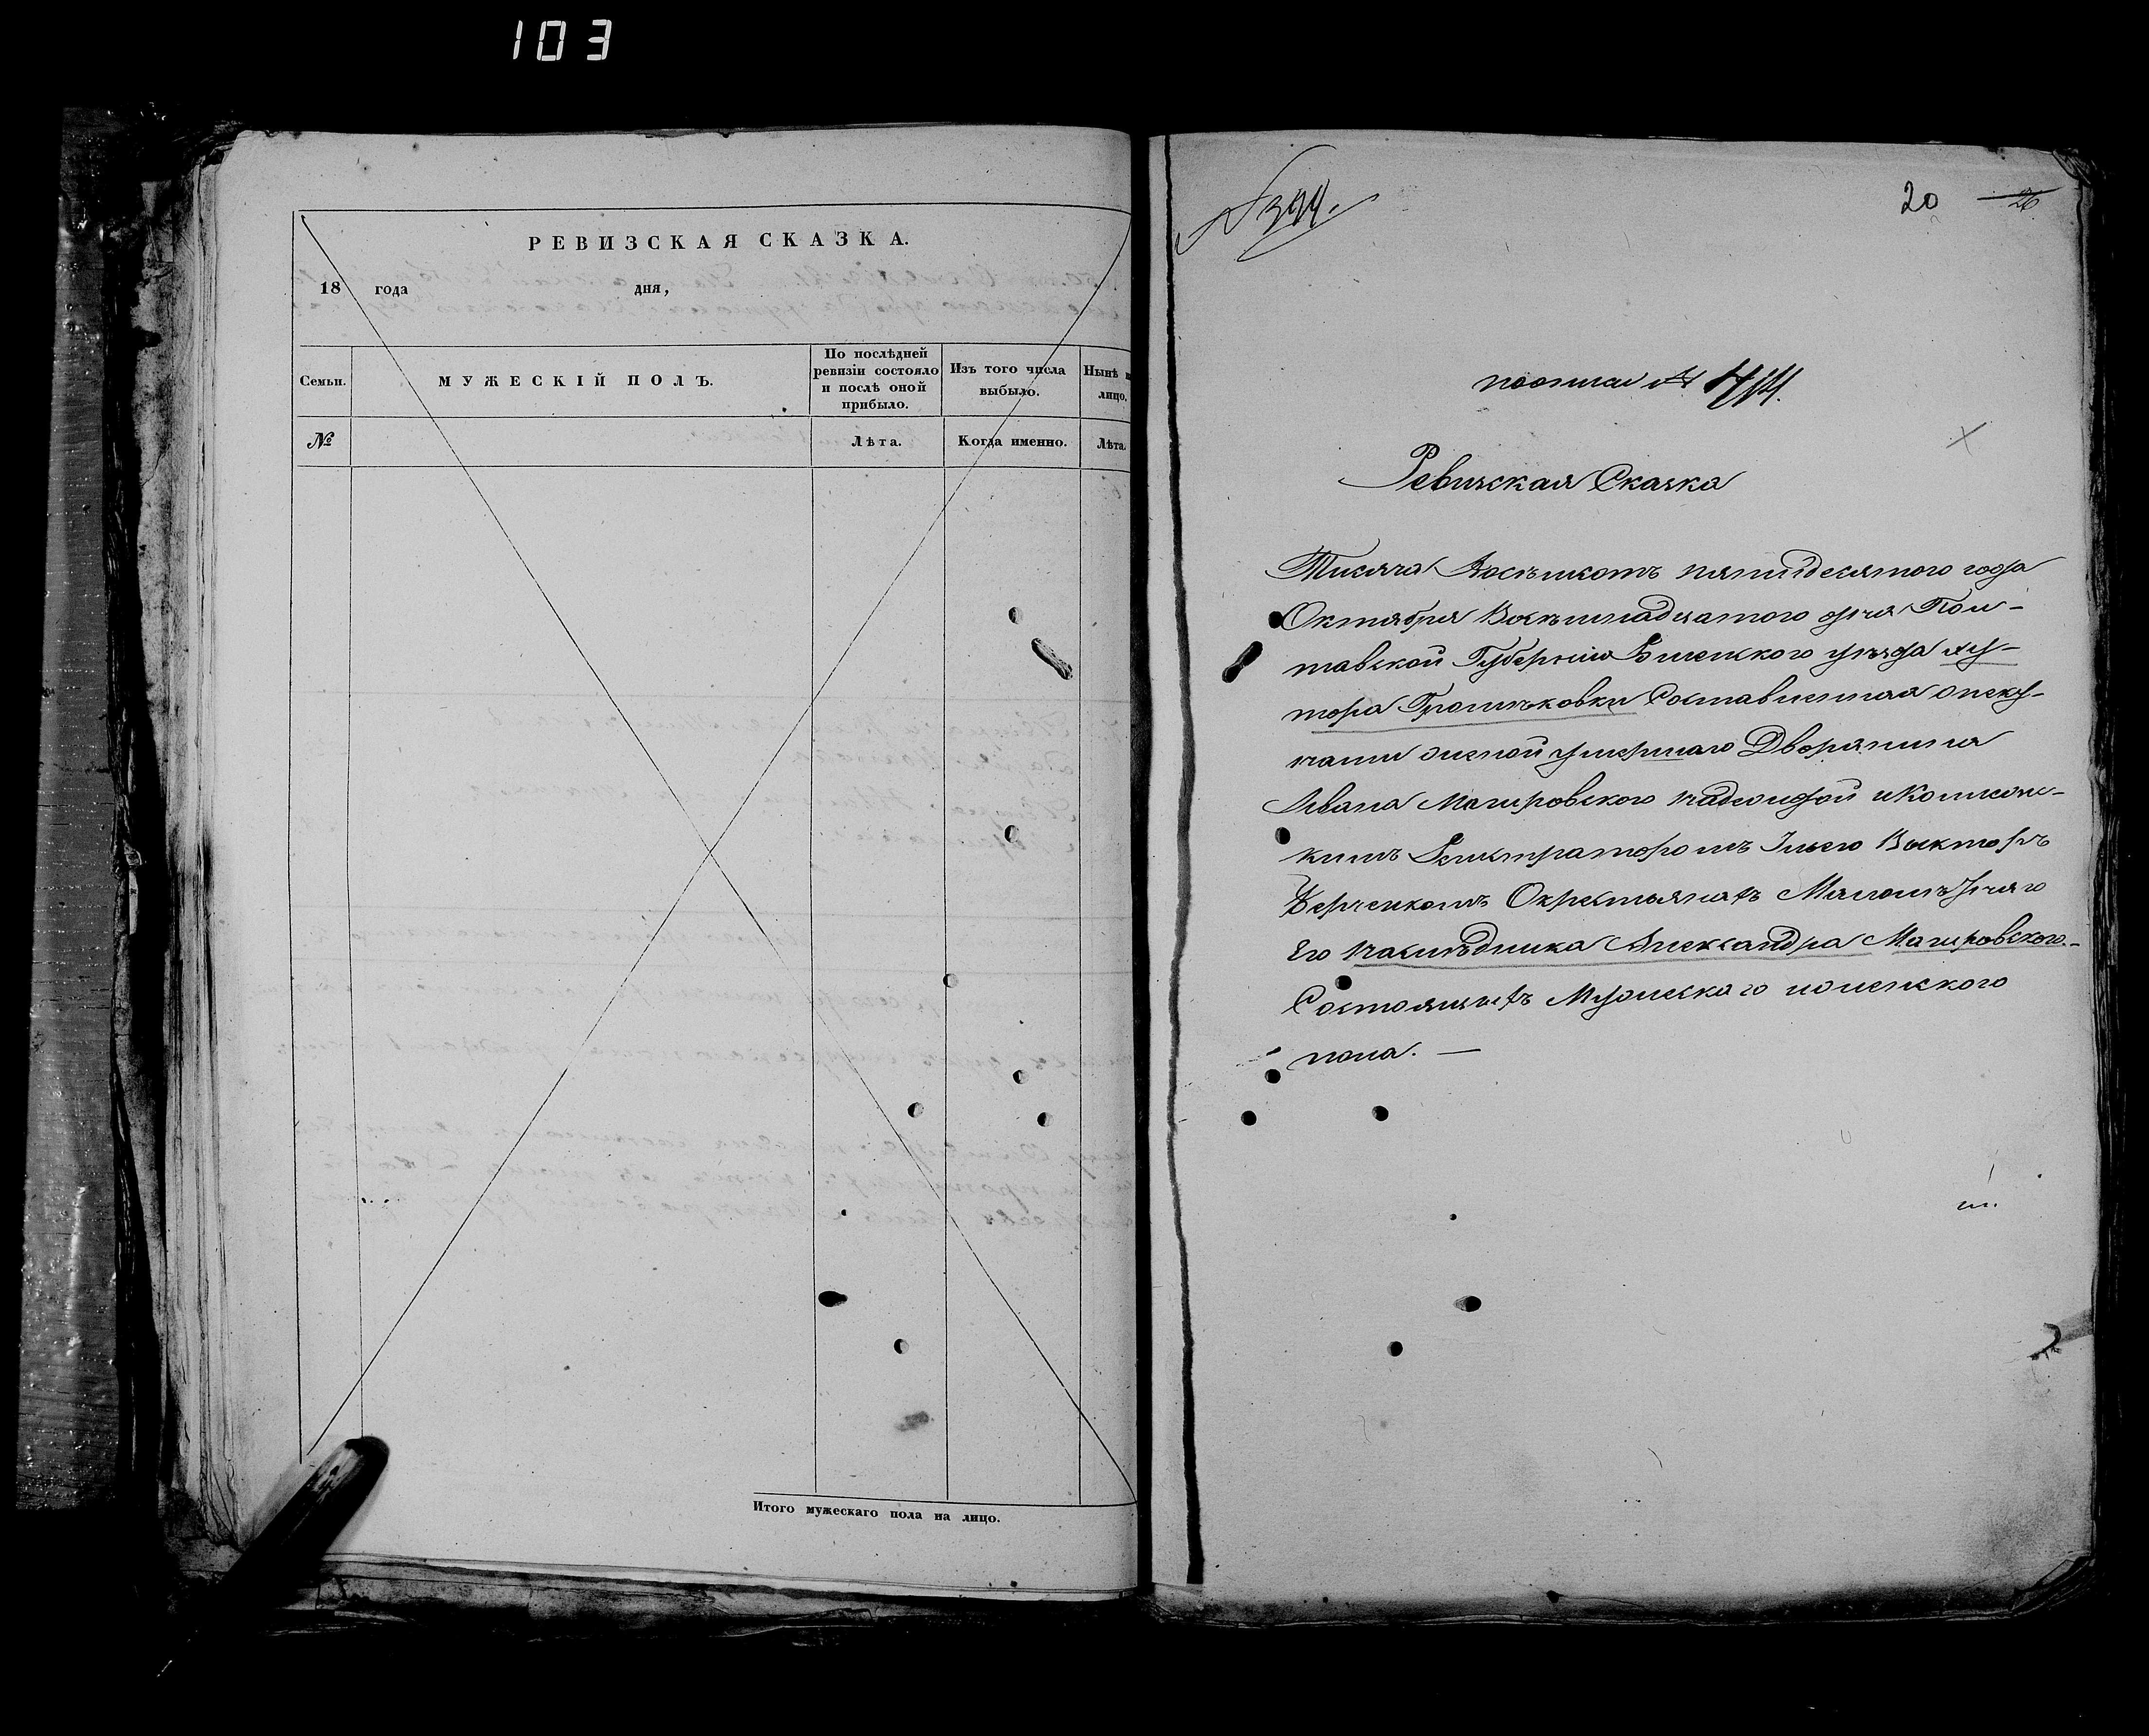 103
РЕВИЗСКАЯ СКАЗКА.
18 года дня,
Семьи.
МУЖЕСКІЙ ПОЛЪ.
По послѣдней ревизіи состояло и послѣ оной прибыло.
Изъ того числа выбыло.
Нынѣ
лицо.
№
Лѣта.
Когда именно.
Лѣта.
Итого мужескаго пола на лицо.
20 26
Ревизская Сказка
Тисяча Восѣмсотъ пятидесятого года
Октября Восѣмнадцатого дня Пол-
тавской Губерніи уѣзда ху-
тора Составленная опеку-
нами умершаго Дворянина
Ивана Магировского
Регистраторомъ
Окрестьянахъ Малолѣтняго
Его наслѣдника Александра Магировского-
Состоящихъ Мужеского иженского
пола. —